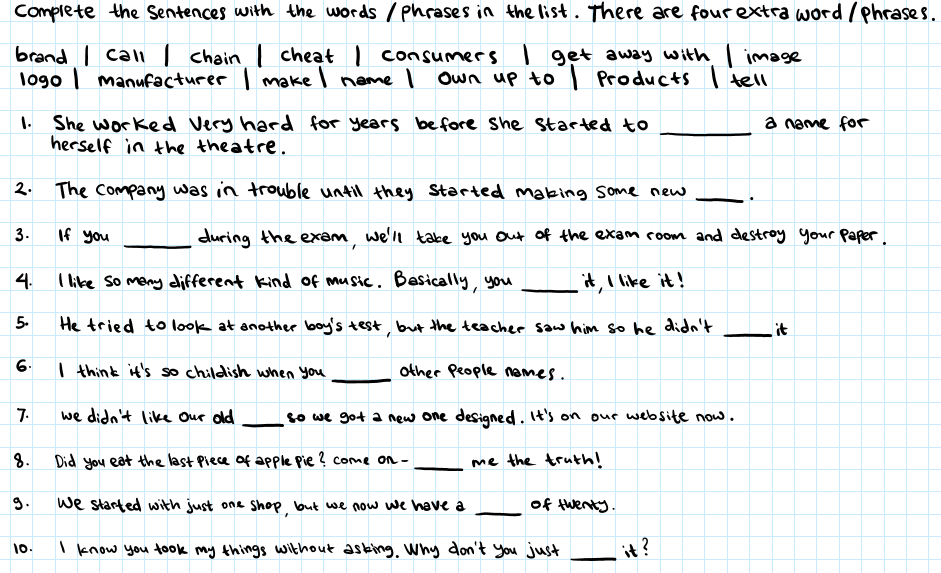 Complete the Sentences with the words / phrases in the list. There are four extra word / phrases.
brand | call | chain | cheat | consumers | get away with | image
logo | manufacturer | make | name | Own up to | Products | tell
1. She worked very hard for years before she started to ______ a name for
herself in the theatre.
2. The company was in trouble until they started making some new ____.
3. If you _____ during the exam, we'll take you out of the exam room and destroy your paper.
4. I like so many different kind of music. Basically, you ____ it, I like it!
5. He tried to look at another boy's test, but the teacher saw him so he didn't ____ it
6. I think it's so childish when you ____ other people names.
7. we didn't like our old ____ so we got a new one designed. It's on our website now.
8. Did you eat the last piece of apple pie? come on - ____ me the truth!
9. We started with just one shop, but we now we have a ____ of twenty.
10. I know you took my things without asking. Why don't you just ____ it?